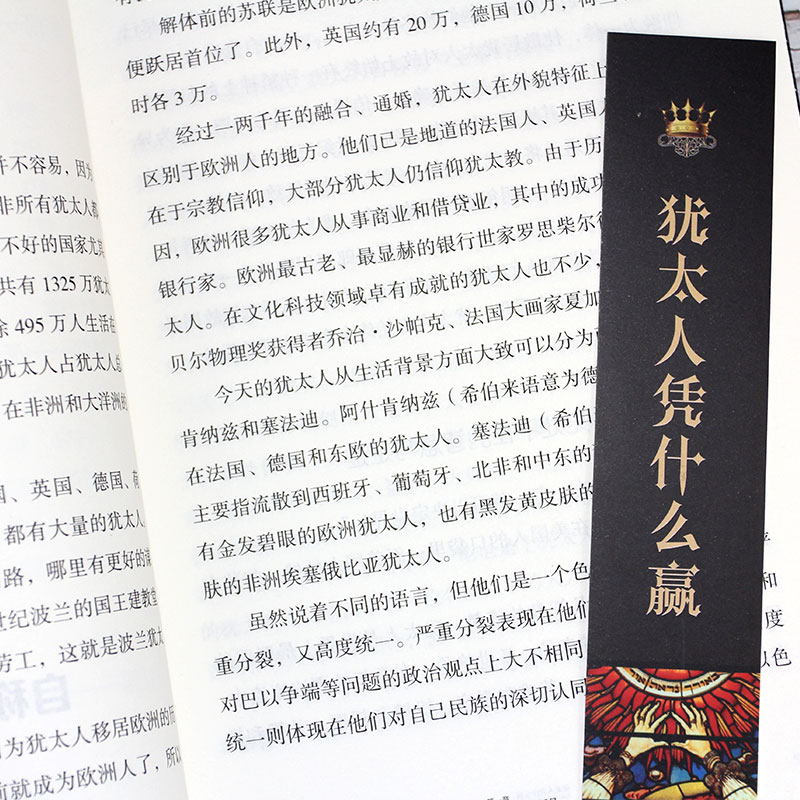 并不容易，因为
非所有犹太人都
不好的国家尤其
共有 1325 万犹太
余 495 万人生活在
犹太人占犹太人总
在非洲和大洋洲的
国、英国、德国、
都有大量的犹太人
路，哪里有更好的谋
世纪波兰的国王建教堂
劳工，这就是波兰犹太
因为犹太人移居欧洲的历
前就成为欧洲人了，所以
解体前的苏联是欧洲犹
便跃居首位了。此外，英国约有 20 万，德国 10 万，荷兰
时各 3 万。
经过一两千年的融合、通婚，犹太人在外貌特征上
区别于欧洲人的地方。他们已是地道的法国人、英国人
在于宗教信仰，大部分犹太人仍信仰犹太教。由于历
因，欧洲很多犹太人从事商业和借贷业，其中的成功
银行家。欧洲最古老、最显赫的银行世家罗思柴尔德
太人。在文化科技领域卓有成就的犹太人也不少，
贝尔物理奖获得者乔治·沙帕克、法国大画家夏加
今天的犹太人从生活背景方面大致可以分为
肯纳兹和塞法迪。阿什肯纳兹（希伯来语意为德
在法国、德国和东欧的犹太人。塞法迪（希伯
主要指流散到西班牙、葡萄牙、北非和中东的
有金发碧眼的欧洲犹太人，也有黑发黄皮肤的
肤的非洲埃塞俄比亚犹太人。
虽然说着不同的语言，但他们是一个色
重分裂，又高度统一。严重分裂表现在他们 和
对巴以争端等问题的政治观点上大不相同 度
统一则体现在他们对自己民族的深切认同 以色
犹太人凭什么赢